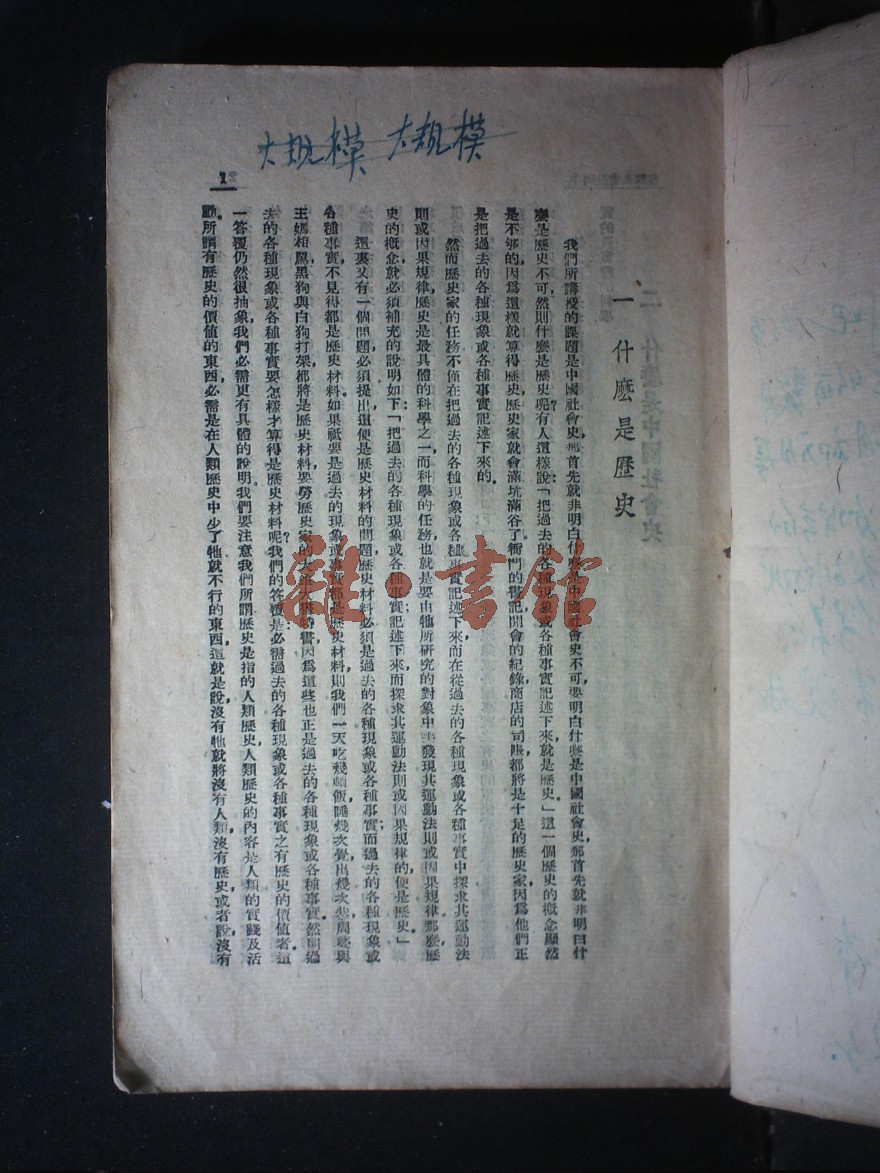 大規模 大規模
1
一 什麽是歷史
我們所講授的課題是中國社會史，那首先就非明白什麽是中國社會史不可，要明白什麽是中國社會史，那首先就非明白什
麽是歷史不可，然則什麽是歷史呢？有人這樣說：「把過去的各種現象或各種事實記述下來，就是歷史。」這一個歷史的概念顯然
是不够的，因爲這樣就算得歷史，歷史家就會滿坑滿谷了，衙門的書記，開會的紀錄，商店的司賬，都將是十足的歷史家，因爲他們正
是把過去的各種現象或各種事實記述下來的。
然而歷史家的任務，不僅在把過去的各種現象或各種事實記述下來，而在從過去的各種現象或各種事實中探求其運動法
則或因果規律，歷史是最具體的科學之一，而科學的任務，也就是要由牠所研究的對象中去發現其運動法則或因果規律，那麽，歷
史的概念就必須補充的說明如下：「把過去的各種現象或各種事實記述下來，而探求其運動法則或因果規律的，便是歷史。」
這裏又有一個問題必須提出，這便是歷史材料的問題，歷史材料必須是過去的各種現象或各種事實；而過去的各種現象或
各種事實，不見得都是歷史材料，如果祇要是過去的現象或事實都是歷史材料，則我們一天吃幾頓飯，睡幾次覺，出幾次恭，周婆與
王媽相罵，黑狗與白狗打架，都將是歷史材料，要勞歷史家的大筆大書特書，因爲這些也正是過去的各種現象或各種事實，然則過
去的各種現象或各種事實，要怎樣才算得是歷史材料呢？我們的答覆是：必需過去的各種現象或各種事實之有歷史的價值者。這
一答覆仍然很抽象，我們必需更有具體的說明。我們要注意，我們所謂歷史是指的人類歷史，人類歷史的內容是人類的實踐及活
動。所謂有歷史的價值的東西，必需是在人類歷史中少了牠就不行的東西，這就是說，沒有牠就將沒有人類，沒有歷史，或者說，沒有
雜·書館